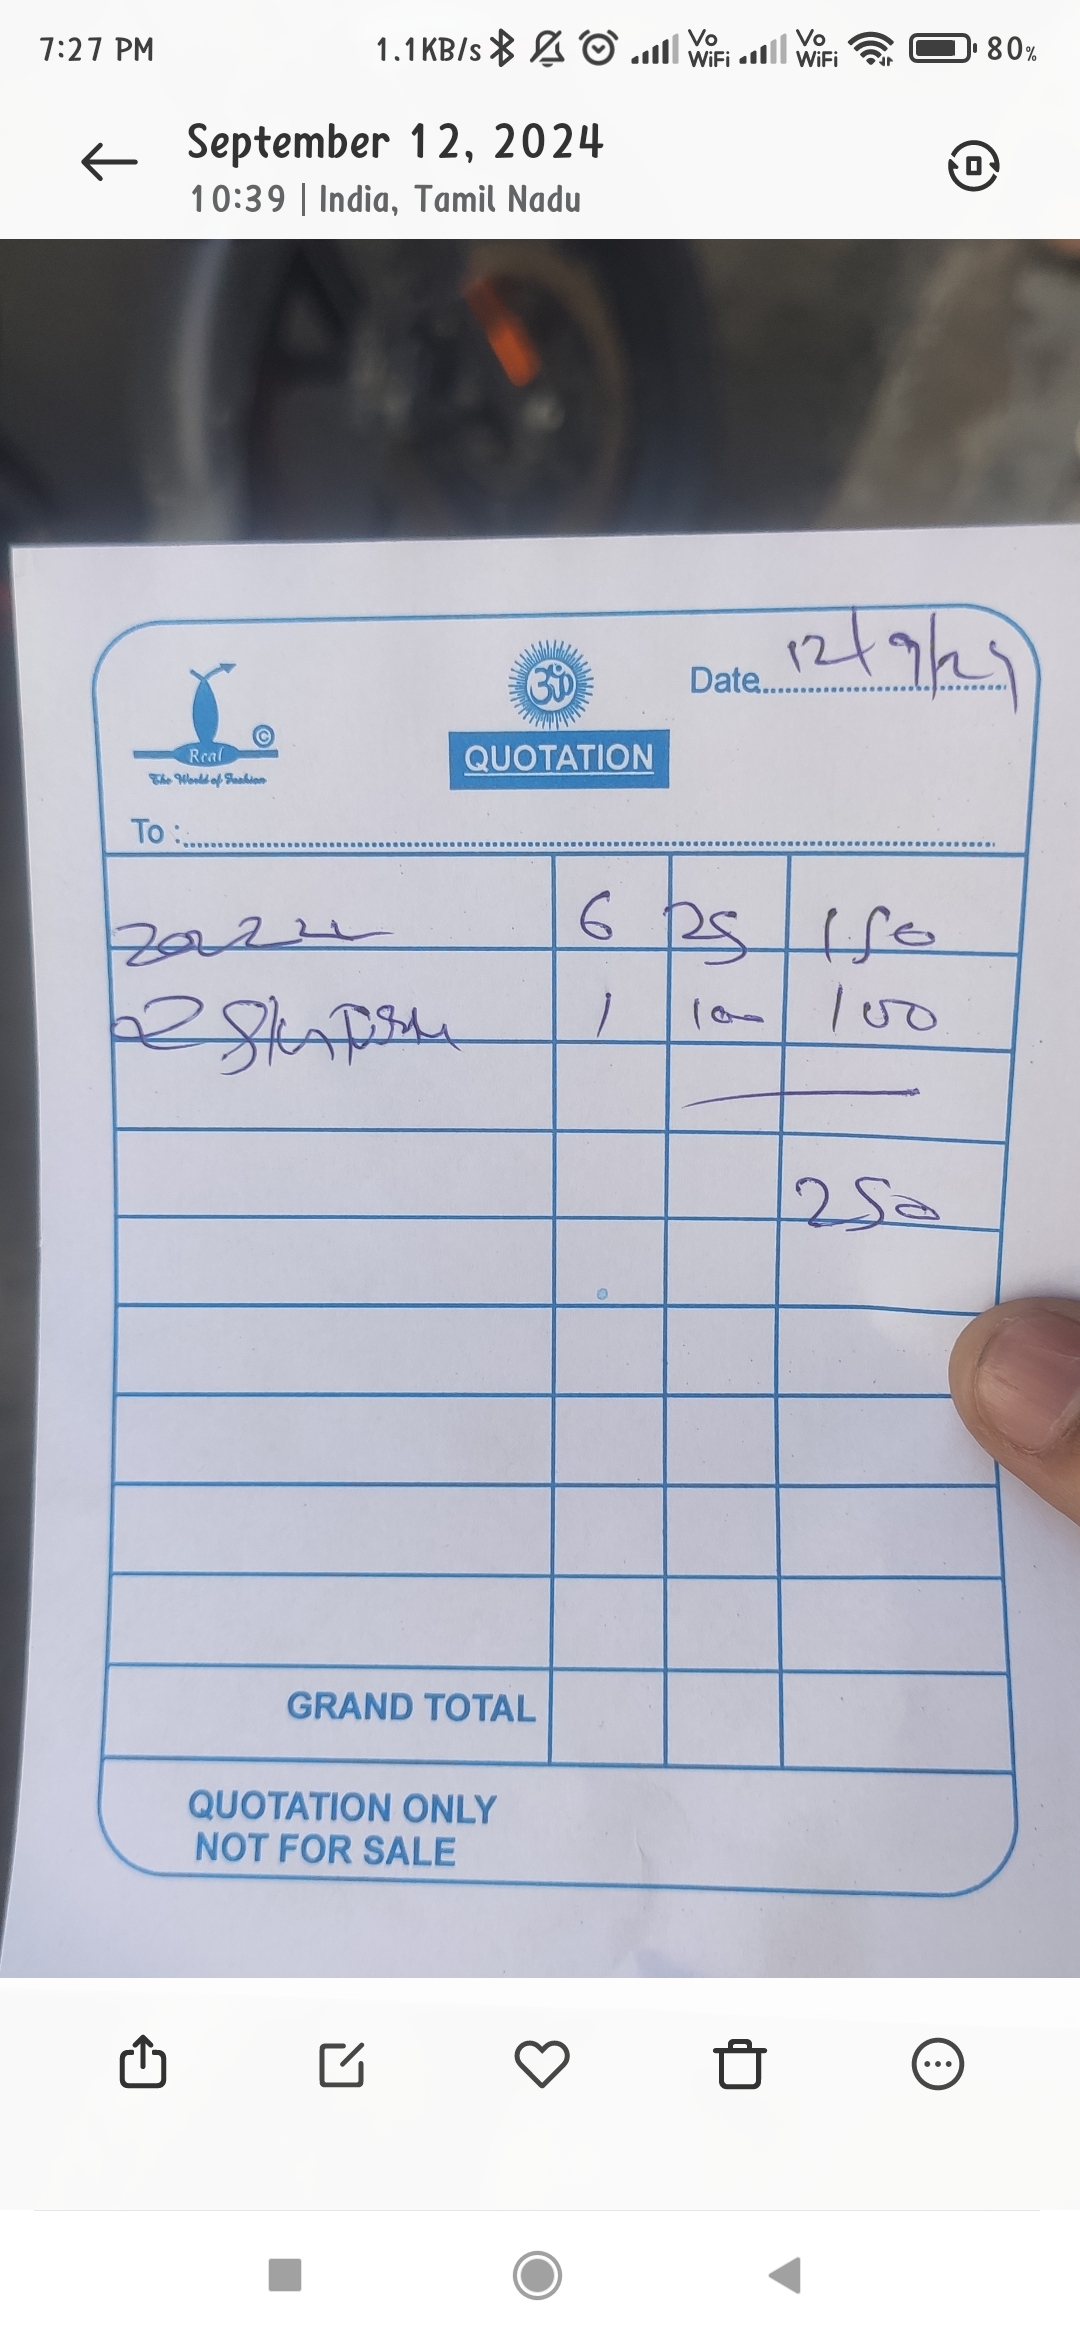 7:27 PM 1.1KB/s Vo WiFi Vo WiFi 80%
September 12, 2024
10:39 | India, Tamil Nadu
Date 12/9/24
ॐ
Real ©
The World of Fashion
QUOTATION
To :
6 25 150
1 100 100
250
GRAND TOTAL
QUOTATION ONLY
NOT FOR SALE